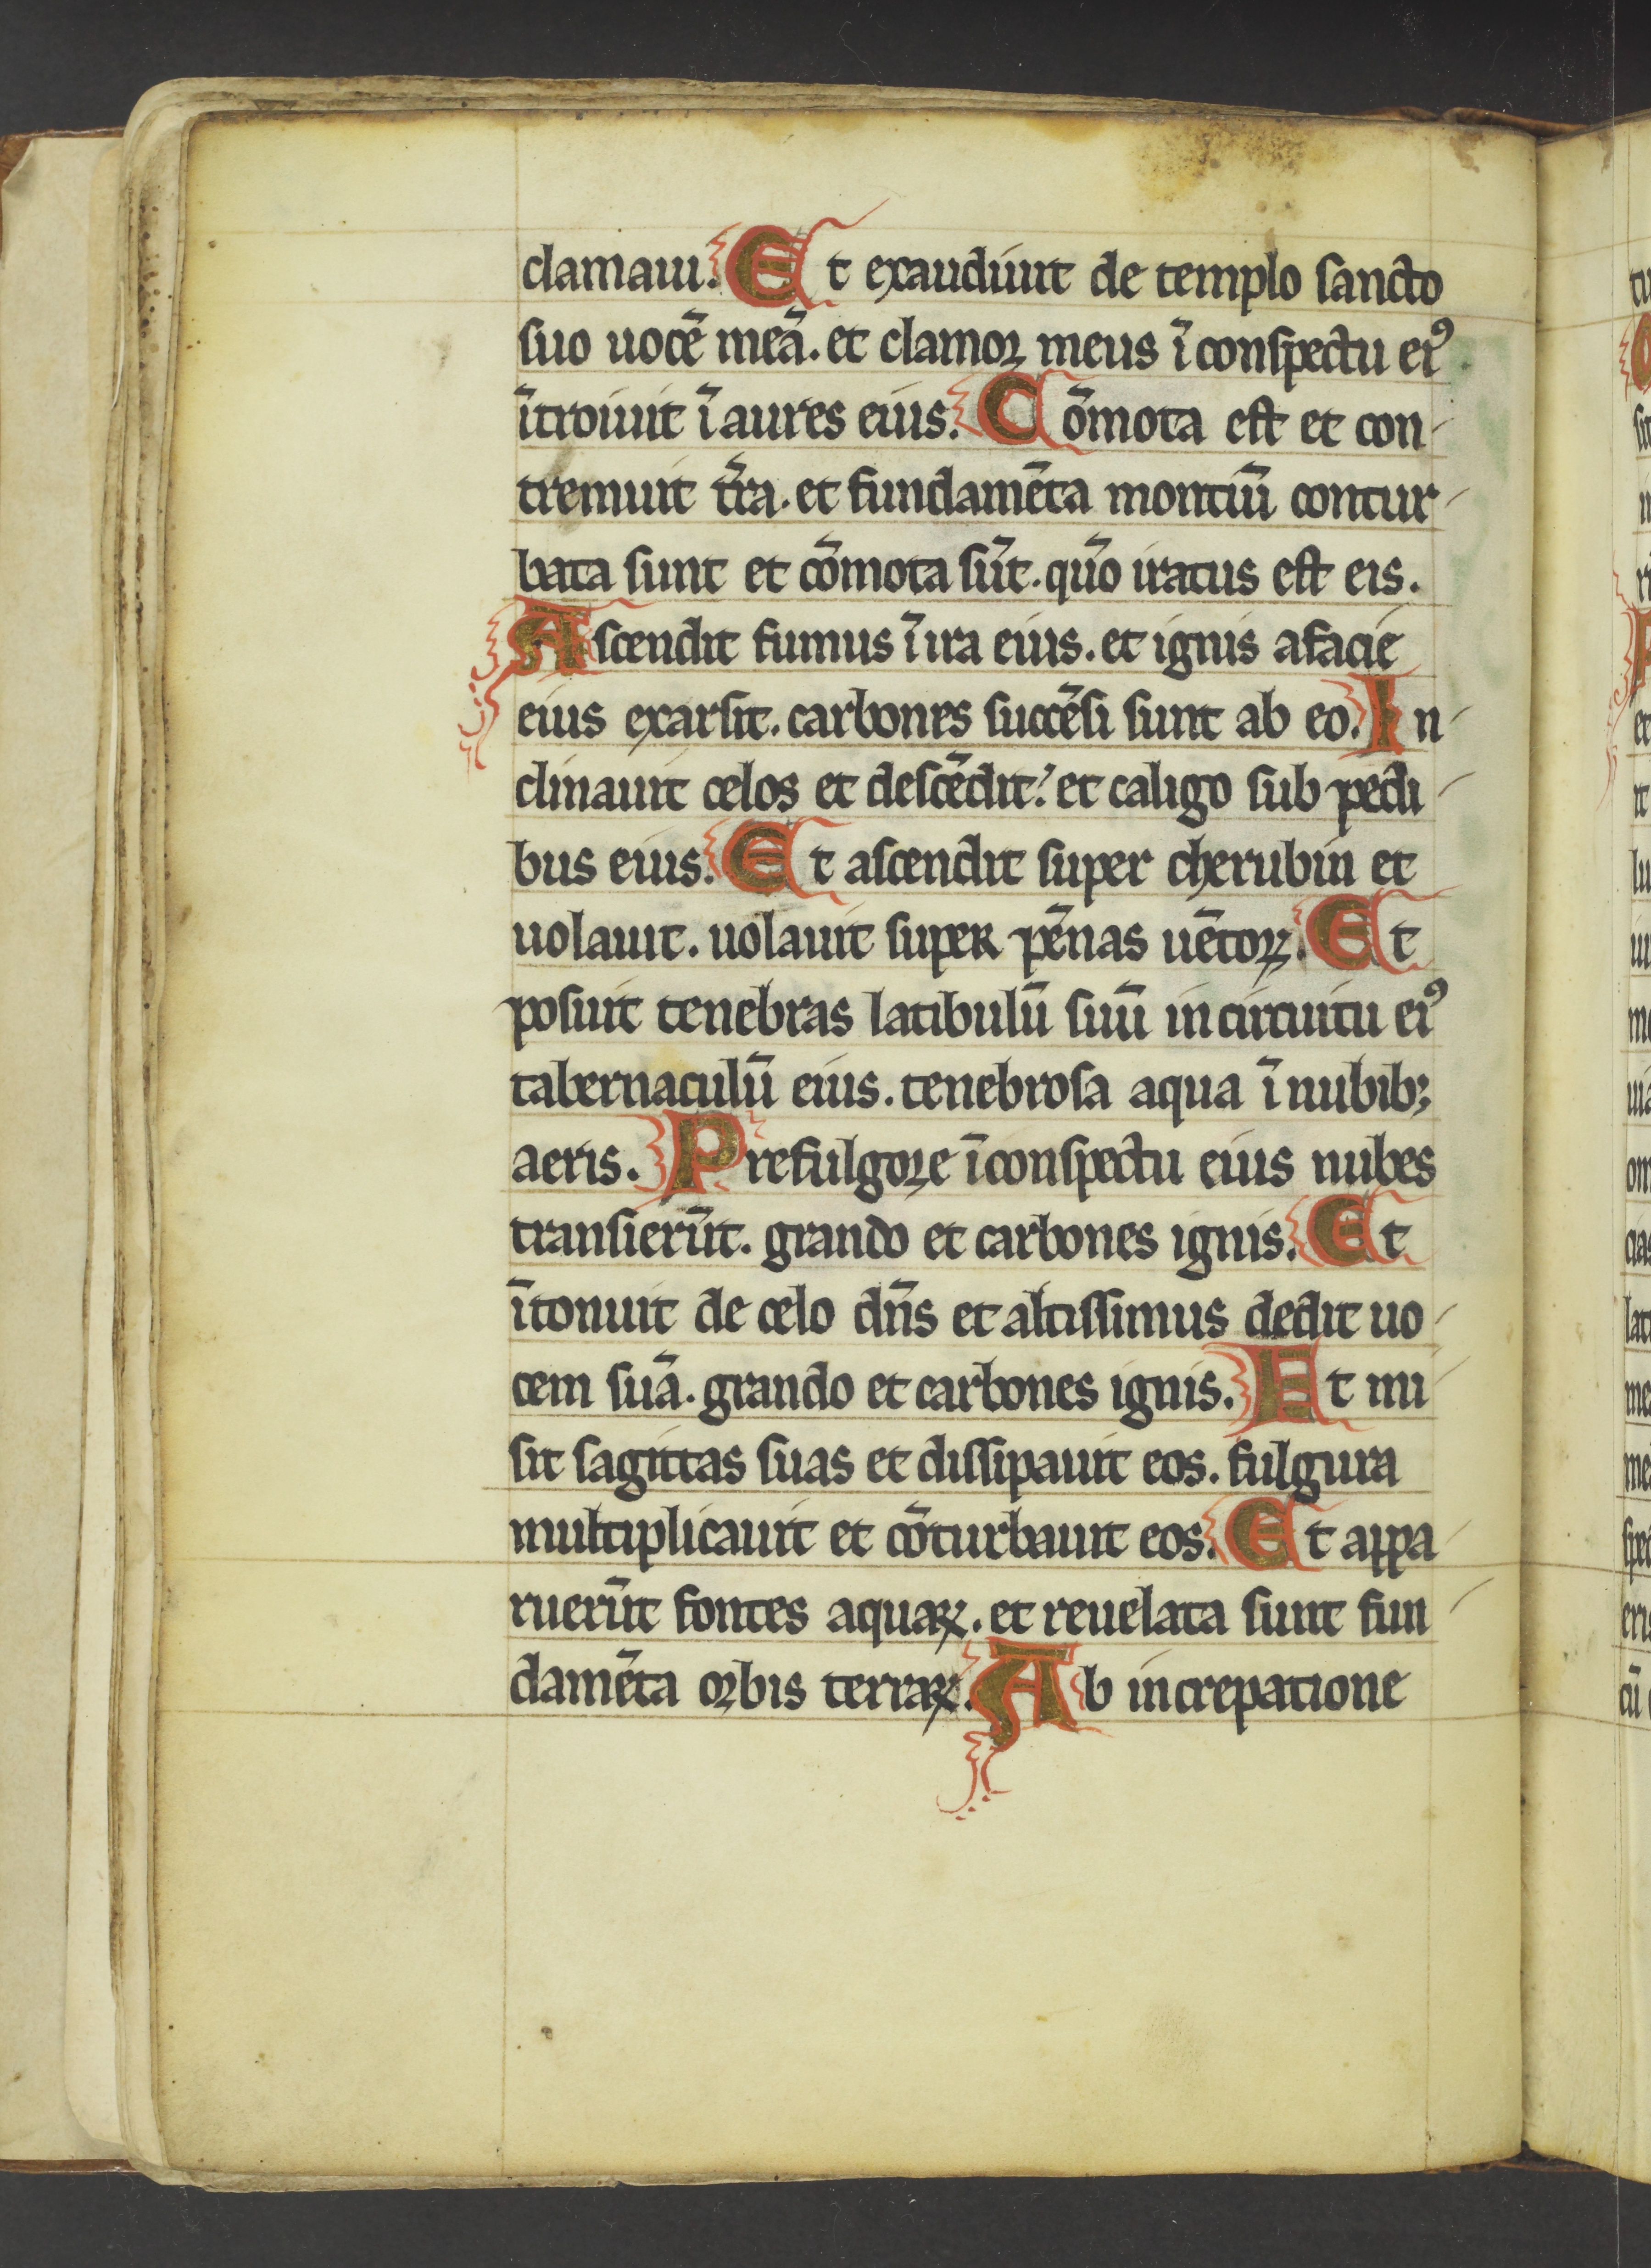 clamaui. Et exaudiuit de templo sancto
suo uocē meā. et clamor meus ī conspectu eiꝰ
ītroiuit ī aures eius. Cōmota est et con-
tremuit t̄ra. et fundamēta montiū contur-
bata sunt et cōmota sūt. qūo iratus est eis.
Ascendit fumus ī ira eius. et ignis a facie
eius exarsit. carbones succēsi sunt ab eo. In-
clinauit celos et descēdit. et caligo sub pedi-
bus eius. Et ascendit super cherubin et
uolauit. uolauit super pēnas uētoꝝ. Et
posuit tenebras latibulū suū in circuitu eiꝰ
tabernaculū eius. tenebrosa aqua ī nubibꝫ
aeris. Prefulgore ī conspectu eius nubes
transierūt. grando et carbones ignis. Et
ītonuit de celo dn̄s et altissimus dedit uo-
cem suā. grando et carbones ignis. Et mi-
sit sagittas suas et dissipauit eos. fulgura
multiplicauit et cōturbauit eos. Et appa-
ruerūt fontes aquaꝝ. et reuelata sunt fun-
damēta orbis terraꝝ. Ab increpatione